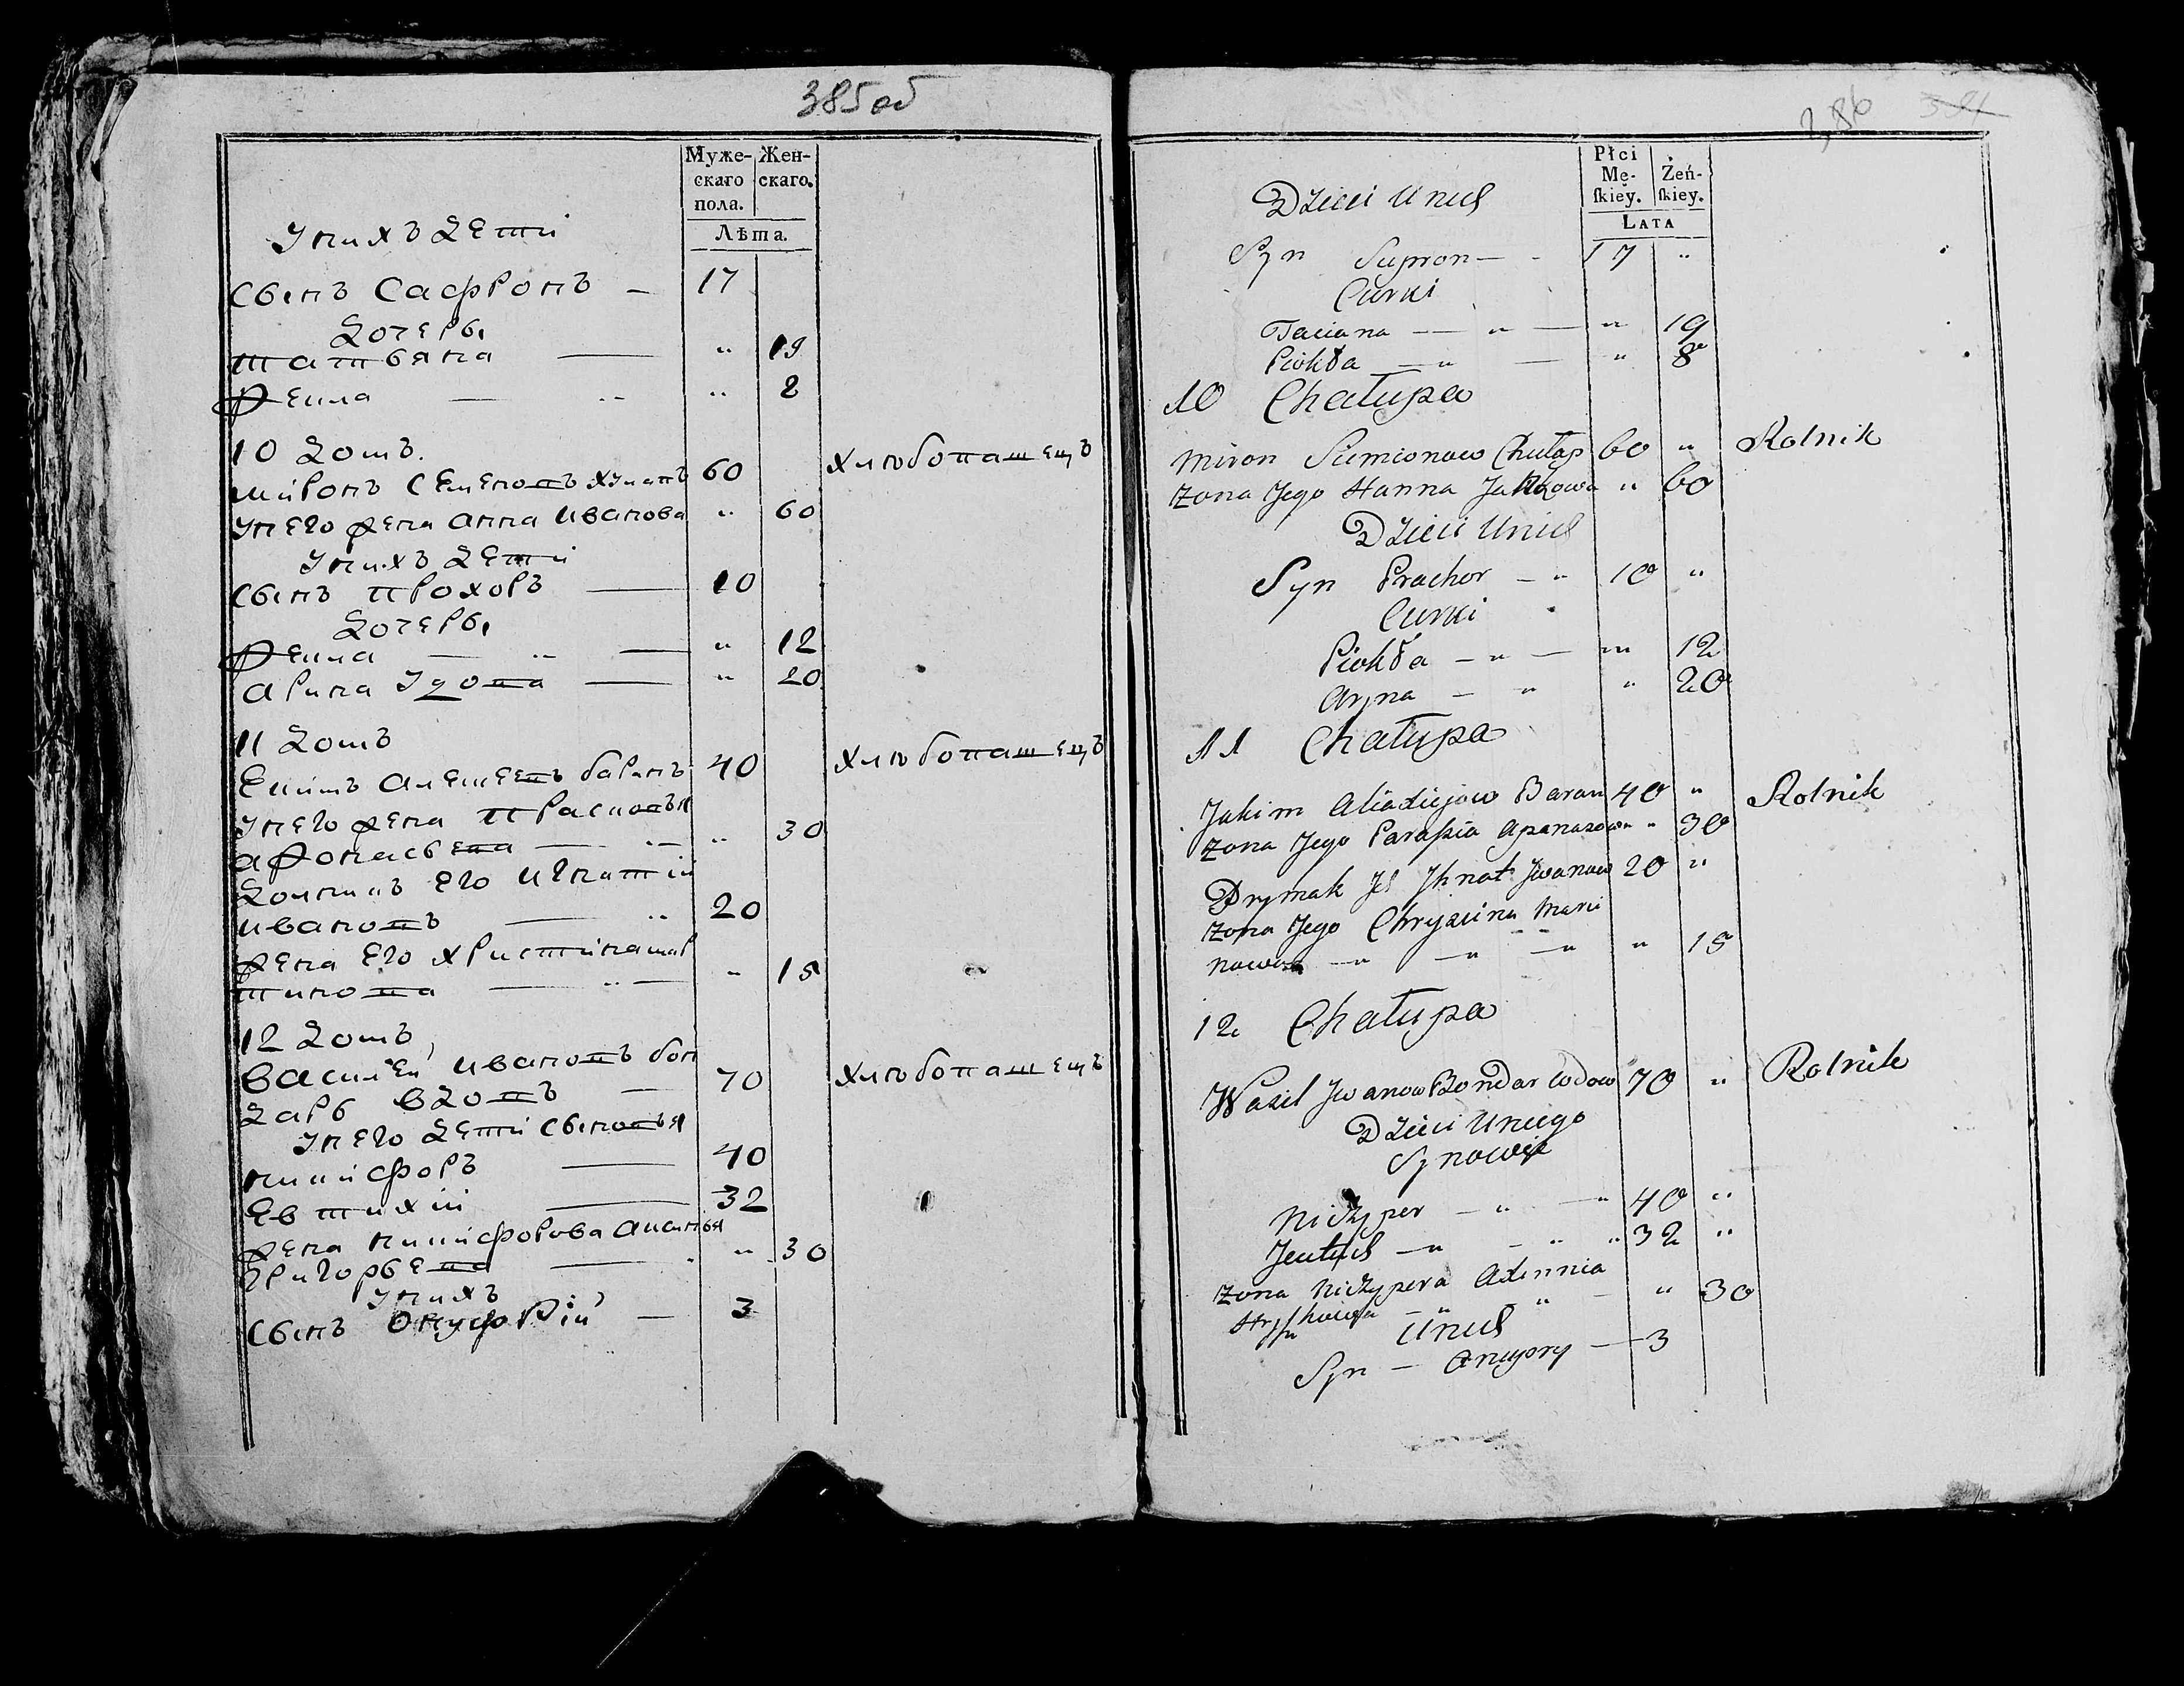 385 об
Муже-
скаго
пола.
Жен-
скаго.
Лѣта.
У нихъ дети
Сынъ Сафронъ — 17
дочеры
татьяна — " 19
фекла — " " 8
10 домъ.
миронъ Семеновъ 60 хлѣбопашецъ
У него жена анна Иванова " 60
У нихъ дети
Сынъ прохоръ — 10
дочеры
фекла — " — " 12
арина — " 20
11 домъ
Екимъ алексеевъ баранъ 40 хлѣбопашецъ
У него жена прасковья
афонасьева — " — " 30
его Игнатій
ивановъ — " 20
жена его христина мар
тинова — " — " 15
12 домъ
Василей ивановъ бон
даръ вдовъ — 70 хлѣбопашецъ
У него дети сыновья
никифоръ — 40
Евтихій — 32
жена никифорова аксинья
григорьева — " 30
У нихъ
Сынъ Онуфрій — 3
386 381
Płci
Mę-
skiey.
Żeń-
skiey.
LATA
Dzieci U nich
Syn Supron — - 17 "
Curki
Taciana — " — " 19
Piokła — " — " 8
10 Chałupa
Miron Siemionow 60 " Rolnik
Zona Jego Hanna " 60
Dzieci U nich
Syn Prachor — " 10 "
Curki
Piokła — " — " 12
Aryna — " " 20
11 Chałupa
Jakim Baran 40 " Rolnik
Zona Jego Parasia Apanasowa " 30
Prymak Ich Ihnat Jwanow 20 "
Zona Jego Chryscina Marci
nowa — " — " — " " 15
12 Chałupa
Wasil Jwanow Bondar Wdow 70 " Rolnik
Dzieci U niego
Synowie
Niczyper — " — " 40 "
Jeutuch — " - " " 32 "
Zona Niczypera Axinnia
— " " — " 30
U nich
Syn — Anupry — 3